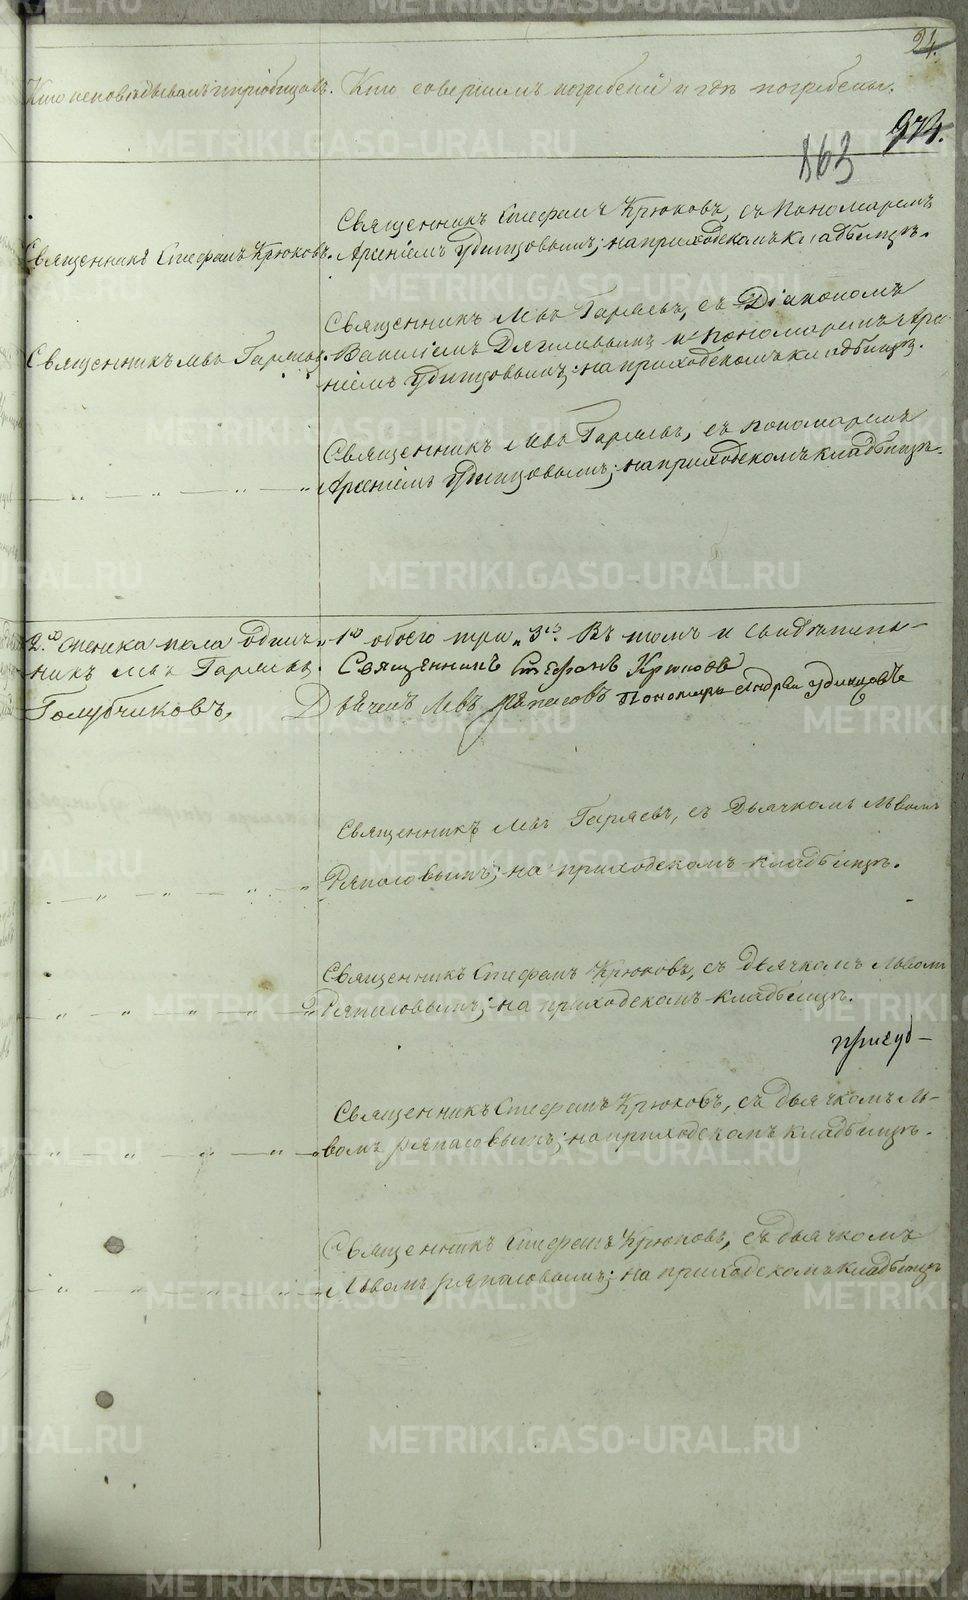 24.
Кто исповѣдывалъ и пріобщалъ. Кто совершалъ погребеніе и гдѣ погребены.
973.
863
Священникъ Стефанъ Крюковъ, съ Пономаремъ
Священникъ Стефанъ Крюковъ. Арсеніемъ Удинцовымъ; на приходскомъ кладбищѣ.
Священникъ Левъ Гаряевъ, съ Діакономъ
Священникъ Левъ Гаряевъ. Василіемъ Дягилевымъ и Пономаремъ Арсе-
ніемъ Удинцовымъ; на приходскомъ кладбищѣ.
Священникъ Левъ Гаряевъ, съ пономаремъ
— „ — „ — „ — „ Арсеніемъ Удинцовымъ; на приходскомъ кладбищѣ.
женска пола одинъ „ 1 обоего три „ 3. Въ томъ и свидѣтель-
никъ Левъ Гаряевъ. Священникъ Стефанъ Крюковъ
Голубчиковъ, Дьячекъ Левъ Ряпасовъ Пономарь Андрей Удинцовъ
Священникъ Левъ Гаряевъ, съ Дьячкомъ Львомъ
— „ — „ — „ — „ Ряпасовымъ; на приходскомъ кладбищѣ.
Священникъ Стефанъ Крюковъ, съ дьячкомъ Львомъ
— „ — „ — „ — „ Ряпасовымъ; на приходскомъ кладбищѣ.
присуд-
Священникъ Стефанъ Крюковъ, съ дьячкомъ Ль-
— „ — „ — „ — „ вомъ Ряпасовымъ; на приходскомъ кладбищѣ.
Священникъ Стефанъ Крюковъ, съ дьячкомъ
— „ — „ — „ — „ Львомъ Ряпасовымъ; на приходскомъ кладбищѣ
METRIKI.GASO-URAL.RU